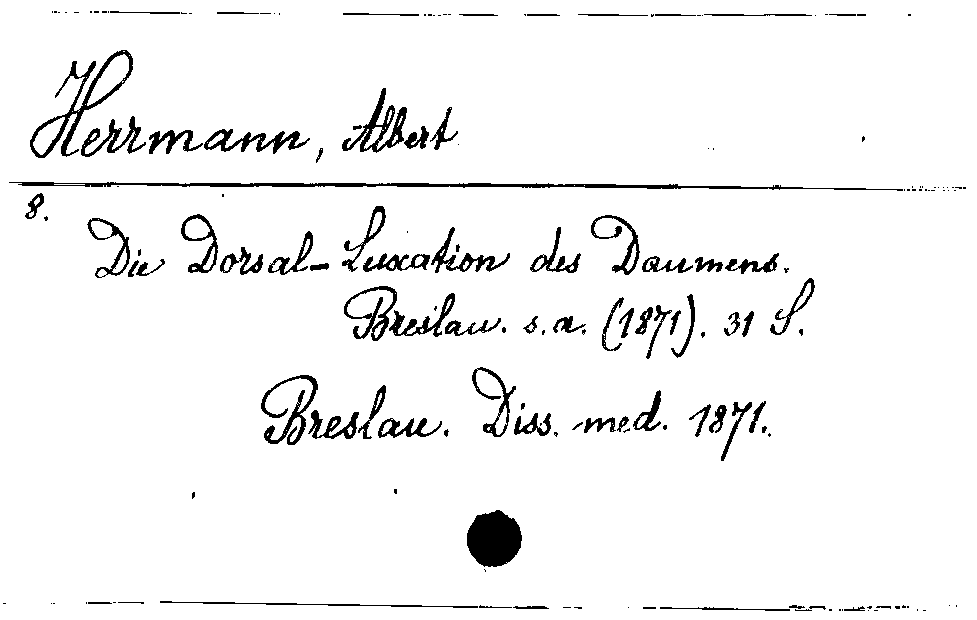 Herrmann, Albert
8.
Die Dorsal-Luxation des Daumens.
Breslau. s. a. (1871). 31 S.
Breslau. Diss. med. 1871.